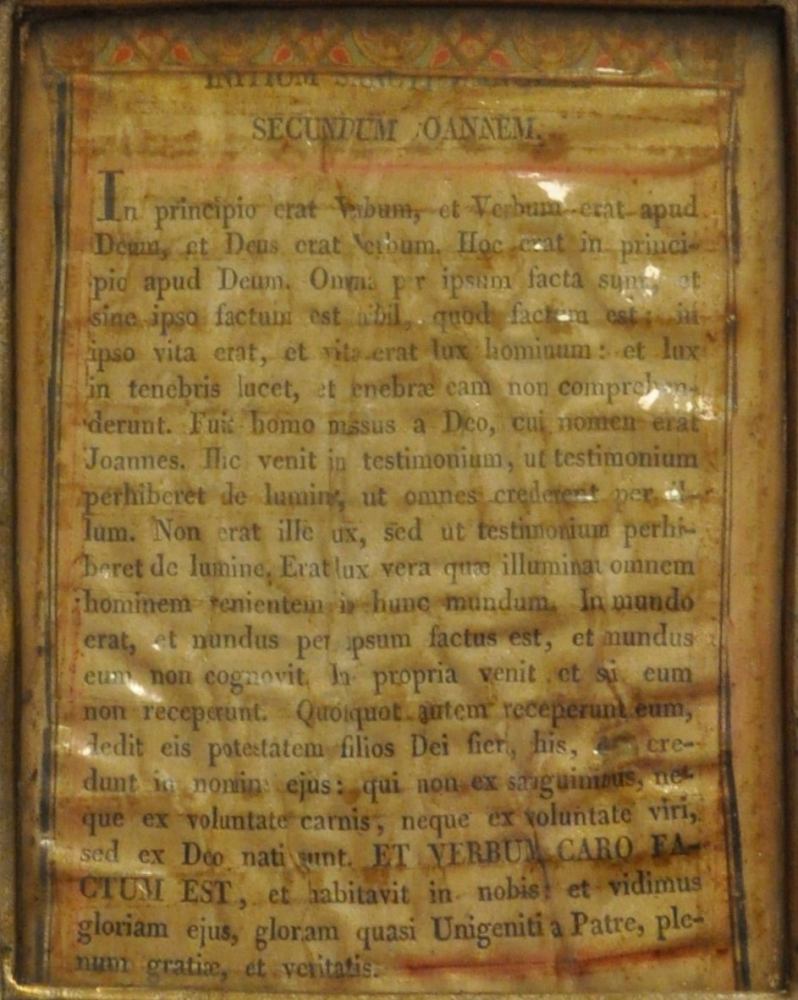 INITIUM SANCTI EVANGELII
SECUNDUM JOANNEM.
In principio erat Verbum, et Verbum erat apud
Deum, et Deus erat Verbum. Hoc erat in princi-
pio apud Deum. Omnia per ipsum facta sunt, et
sine ipso factum est nihil, quod factum est; in
ipso vita erat, et vita erat lux hominum: et lux
in tenebris lucet, et tenebræ eam non comprehen-
derunt. Fuit homo missus a Deo, cui nomen erat
Joannes. Hic venit in testimonium, ut testimonium
perhiberet de lumine, ut omnes crederent per il-
lum. Non erat ille lux, sed ut testimonium perhi-
beret de lumine. Erat lux vera quæ illuminat omnem
hominem venientem in hunc mundum. In mundo
erat, et mundus per ipsum factus est, et mundus
eum non cognovit. In propria venit et sui eum
non receperunt. Quotquot autem receperunt eum,
dedit eis potestatem filios Dei fieri, his, qui cre-
dunt in nomine ejus: qui non ex sanguinibus, ne-
que ex voluntate carnis, neque ex voluntate viri,
sed ex Deo nati sunt. ET VERBUM CARO FA-
CTUM EST, et habitavit in nobis: et vidimus
gloriam ejus, gloriam quasi Unigeniti a Patre, ple-
num gratiæ, et veritatis.